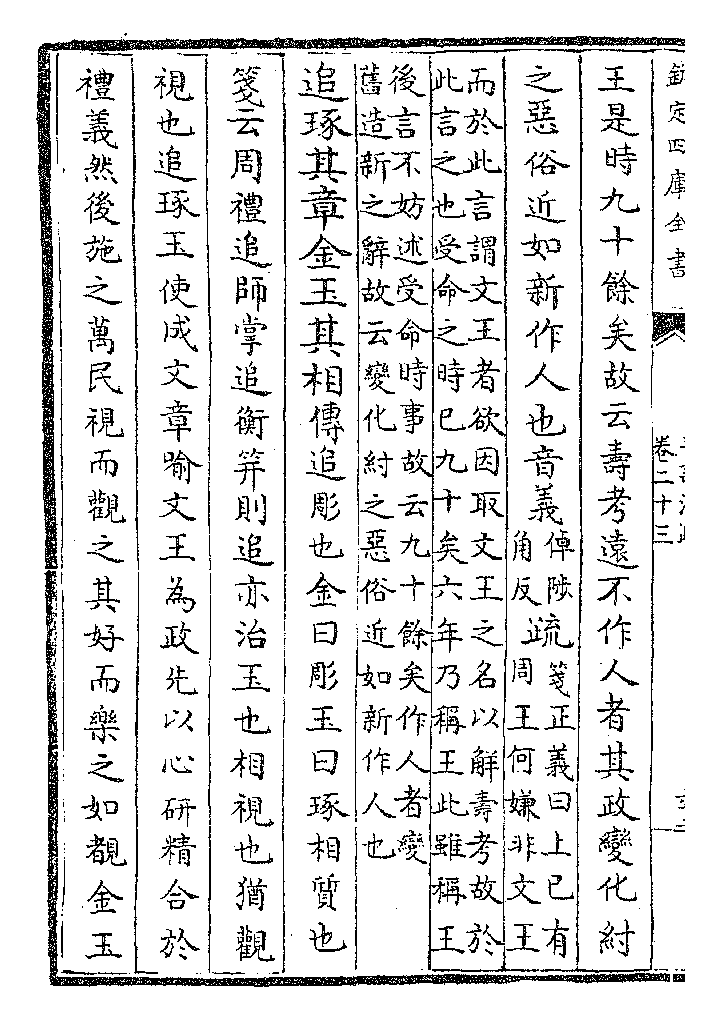 欽定四庫全書
卷二十三
王是時九十餘矣故云壽考遠不作人者其政變化紂
之惡俗近如新作人也音義倬陟角反疏箋正義曰上已有周王何嫌非文王
而於此言謂文王者欲因取文王之名以解壽考故於
此言之也受命之時已九十矣六年乃稱王此雖稱王
後言不妨述受命時事故云九十餘矣作人者變
舊造新之辭故云變化紂之惡俗近如新作人也
追琢其章金玉其相傳追彫也金曰彫玉曰琢相質也
箋云周禮追師掌追衡笄則追亦治玉也相視也猶觀
視也追琢玉使成文章喻文王為政先以心研精合於
禮義然後施之萬民視而觀之其好而樂之如覩金玉